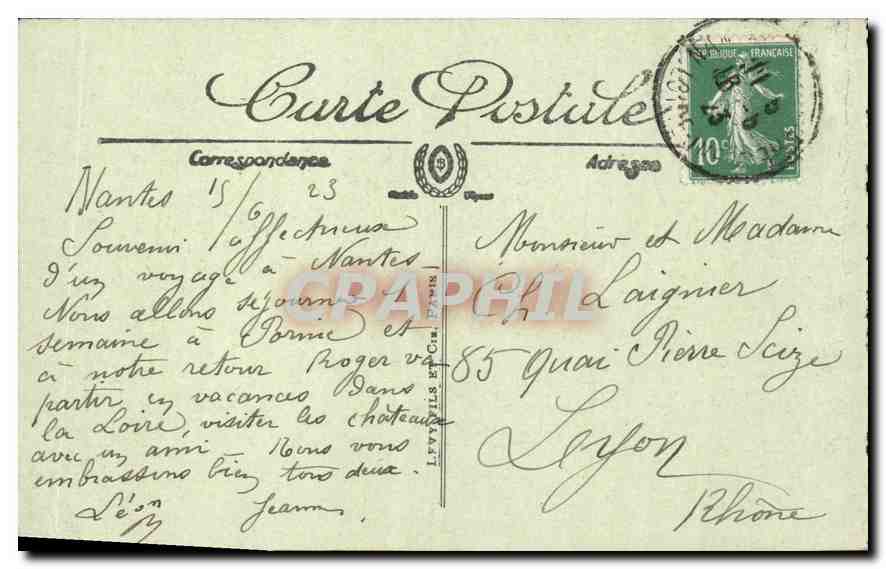 Carte Postale
Correspondance
Adresse
RÉPUBLIQUE FRANÇAISE
10c
POSTES
Nantes 15/6 23
Souvenir affectueux
d'un voyage à Nantes
Nous allons séjourner 1
semaine à Pornic et
à notre retour Roger va
partir en vacances dans
la Loire, visiter les châteaux
avec un ami. Nous vous
embrassons bien tous deux.
Léon Jeanne
LEVY FILS ET Cie, PARIS
Monsieur et Madame
Ch Laignier
85 Quai Pierre Scize
Lyon
Rhône
CPAPHIL